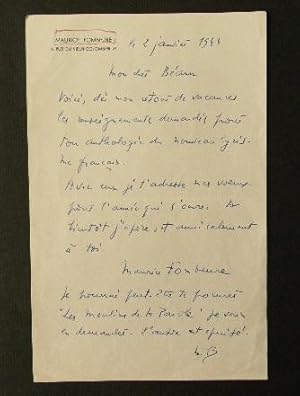 MAURICE FOMBEURE
RUE DU VIEUX COLOMBIER
le 2 janvier
Mon cher Béarn
Voici, dès mon retour de vacances
les renseignements demandés pour
ton anthologie du nouveau
français.
Avec eux je t'adresse mes vœux
pour l'année qui s'ouvre. A
bientôt j'espère, et amicalement
à toi
Maurice Fombeure
Je pourrai peut-être te procurer
"Les Moulins de la Parole" je vais
en demander. L'autre est épuisé.